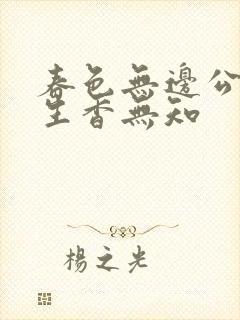 春色無邊公
生香無知
楊之光